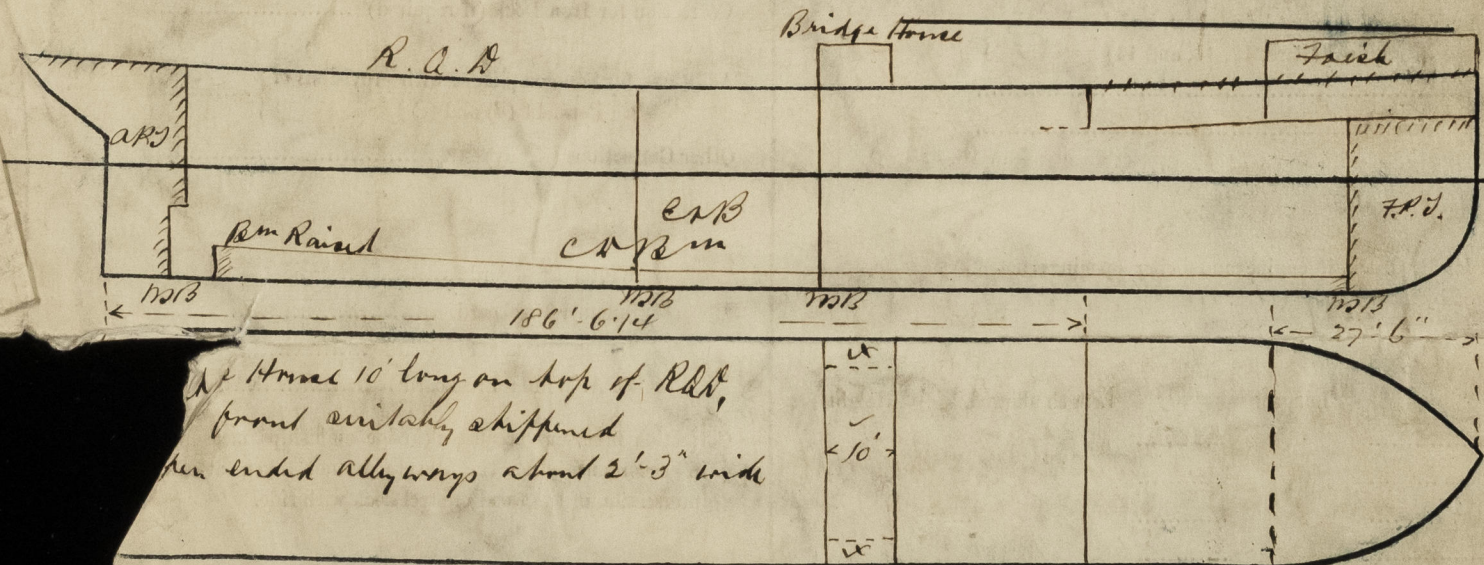 Bridge House
R.Q.D
Focsle
APT
F.P.T.
C & B
C & Bm
Bm Raised
WTB
WTB
WTB
WTB
186'-6.14
27'-6"
House 10' long on top of RQD,
front suitably stiffened
ended alleyways about 2'-3" wide
10'